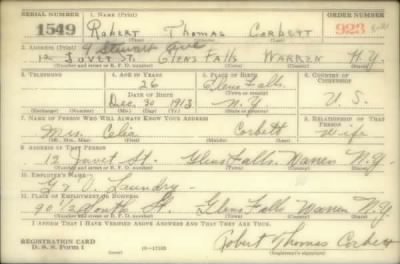 SERIAL NUMBER 1. NAME (Print) ORDER NUMBER
1549 ROBERT THOMAS CORBETT 923
(First) (Middle) (Last)
2. ADDRESS (Print) 9 Stewart Ave
12 JOVET ST. GLENS FALLS WARREN N.Y.
(Number and street or R. F. D. number) (Town) (County) (State)
3. TELEPHONE 4. AGE IN YEARS 5. PLACE OF BIRTH 6. COUNTRY OF CITIZENSHIP
26 Glens Falls
DATE OF BIRTH (Town or county)
Dec. 30 1913 N.Y. U. S.
(Exchange) (Number) (Mo.) (Day) (Yr.) (State or country)
7. NAME OF PERSON WHO WILL ALWAYS KNOW YOUR ADDRESS 8. RELATIONSHIP OF THAT PERSON
Mrs. Celia Corbett Wife
(Mr., Mrs., Miss) (First) (Middle) (Last)
9. ADDRESS OF THAT PERSON
12 Jovet St. Glens Falls Warren N.Y.
(Number and street or R. F. D. number) (Town) (County) (State)
10. EMPLOYER'S NAME
Laundry
11. PLACE OF EMPLOYMENT OR BUSINESS
90 1/2 South St. Glens Falls Warren N.Y.
(Number and street or R. F. D. number) (Town) (County) (State)
I AFFIRM THAT I HAVE VERIFIED ABOVE ANSWERS AND THAT THEY ARE TRUE.
REGISTRATION CARD
D. S. S. Form 1 Robert Thomas Corbett
(Registrant's signature)